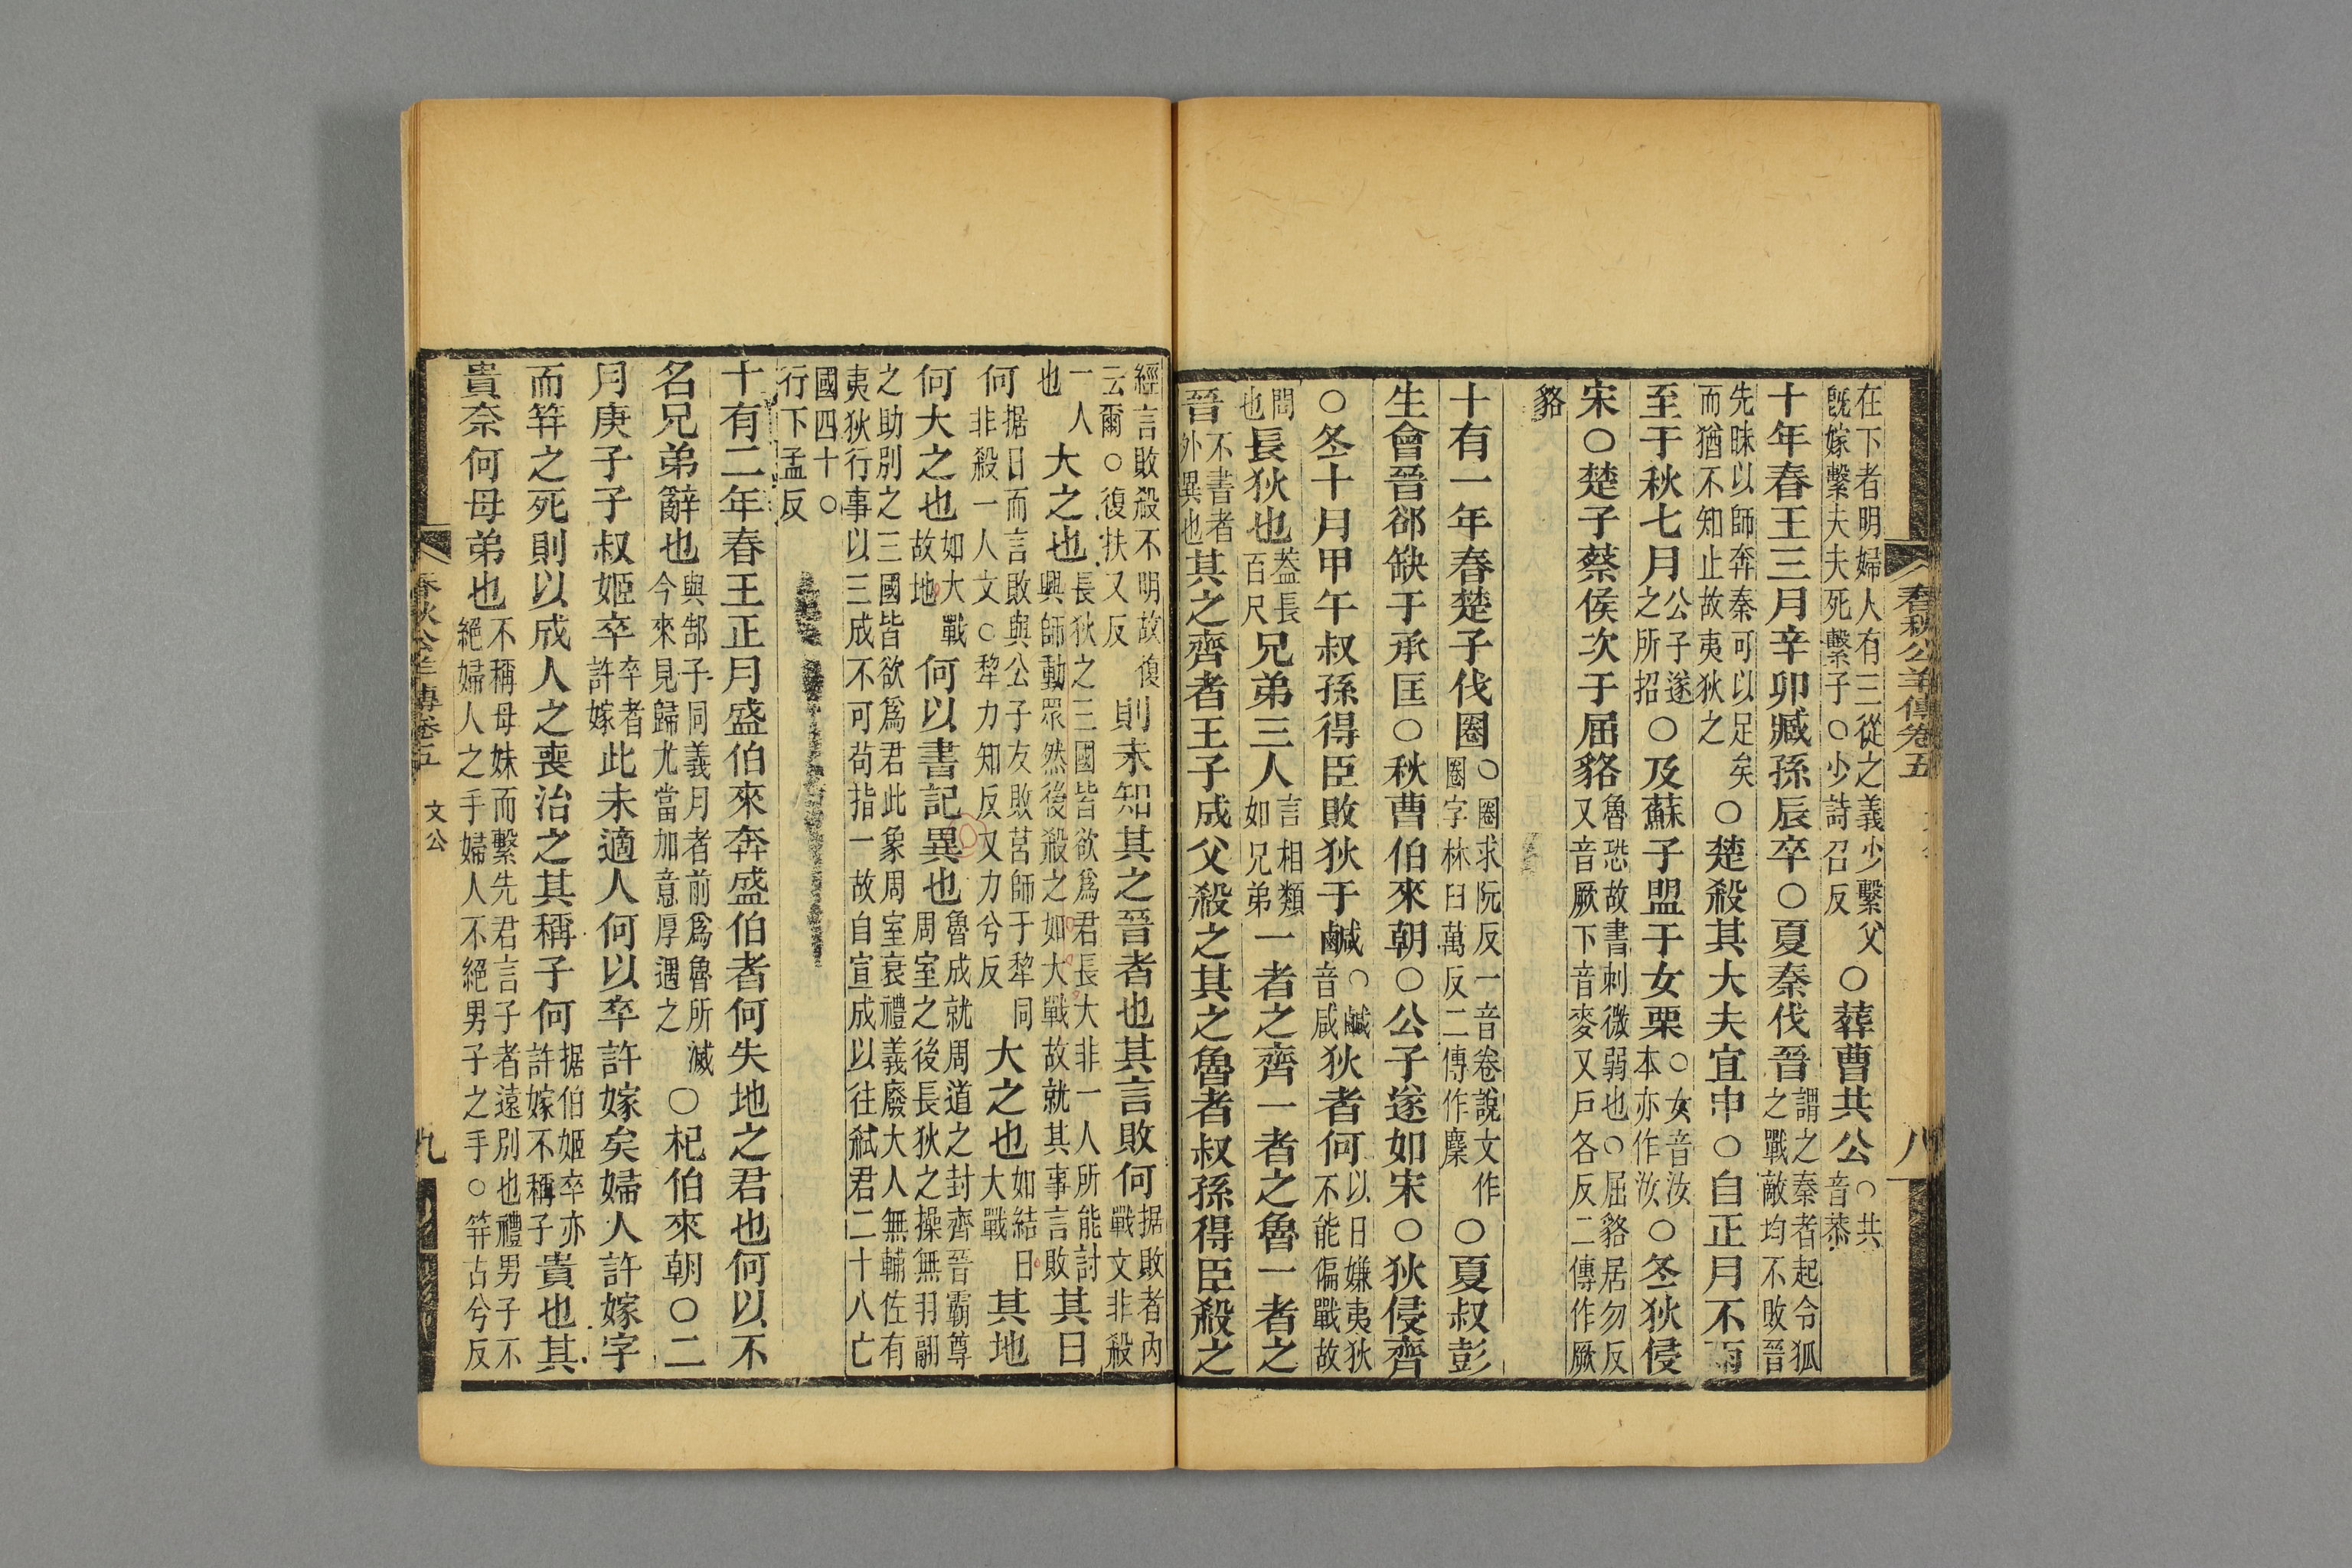 春秋公羊傳卷五 八
在下者明婦人有三從之義少繫父既嫁繫夫夫死繫子○少詩召反○葬曹共公○共音恭
十年春王三月辛卯臧孫辰卒○夏秦伐晉謂之秦者起令狐之戰敵均不敗晉
先昧以師奔秦可以足矣而猶不知止故夷狄之○楚殺其大夫宜申○自正月不雨
至于秋七月公子遂之所招○及蘇子盟于女栗○女音汝本亦作汝○冬狄侵
宋○楚子蔡侯次于屈貉魯恐故書刺微弱也○屈貉居勿反又音厥下音麥又戶各反二傳作厥
貉
十有一年春楚子伐圈○圈求阮反一音卷說文作圈字林臼萬反二傳作麇○夏叔彭
生會晉郤缺于承匡○秋曹伯來朝○公子遂如宋○狄侵齊
○冬十月甲午叔孫得臣敗狄于鹹○鹹音咸狄者何以日嫌夷狄不能偏戰故
問也長狄也蓋長百尺兄弟三人言相類如兄弟一者之齊一者之魯一者之
晉不書者外異也其之齊者王子成父殺之其之魯者叔孫得臣殺之
經言敗殺不明故復云爾○復扶又反則未知其之晉者也其言敗何据敗者內戰文非殺
一人也大之也長狄之三國皆欲爲君長大非一人所能討興師動眾然後殺之如大戰故就其事言敗其日
何据日而言敗與公子友敗莒師于犂同非殺一人文○犂力知反又力兮反大之也如結日大戰其地
何大之也如大戰故地何以書記異也魯成就周道之封齊晉霸尊周室之後長狄之操無羽翮
之助別之三國皆欲爲君此象周室衰禮義廢大人無輔佐有夷狄行事以三成不可苟指一故自宣成以往弒君二十八亡
國四十○行下孟反
十有二年春王正月盛伯來奔盛伯者何失地之君也何以不
名兄弟辭也與郜子同義月者前爲魯所滅今來見歸尤當加意厚遇之○杞伯來朝○二
月庚子子叔姬卒卒者許嫁此未適人何以卒許嫁矣婦人許嫁字
而笄之死則以成人之喪治之其稱子何据伯姬卒亦許嫁不稱子貴也其
貴奈何母弟也不稱母妹而繫先君言子者遠別也禮男子不絕婦人之手婦人不絕男子之手○笄古兮反
春秋公羊傳卷五 文公 九